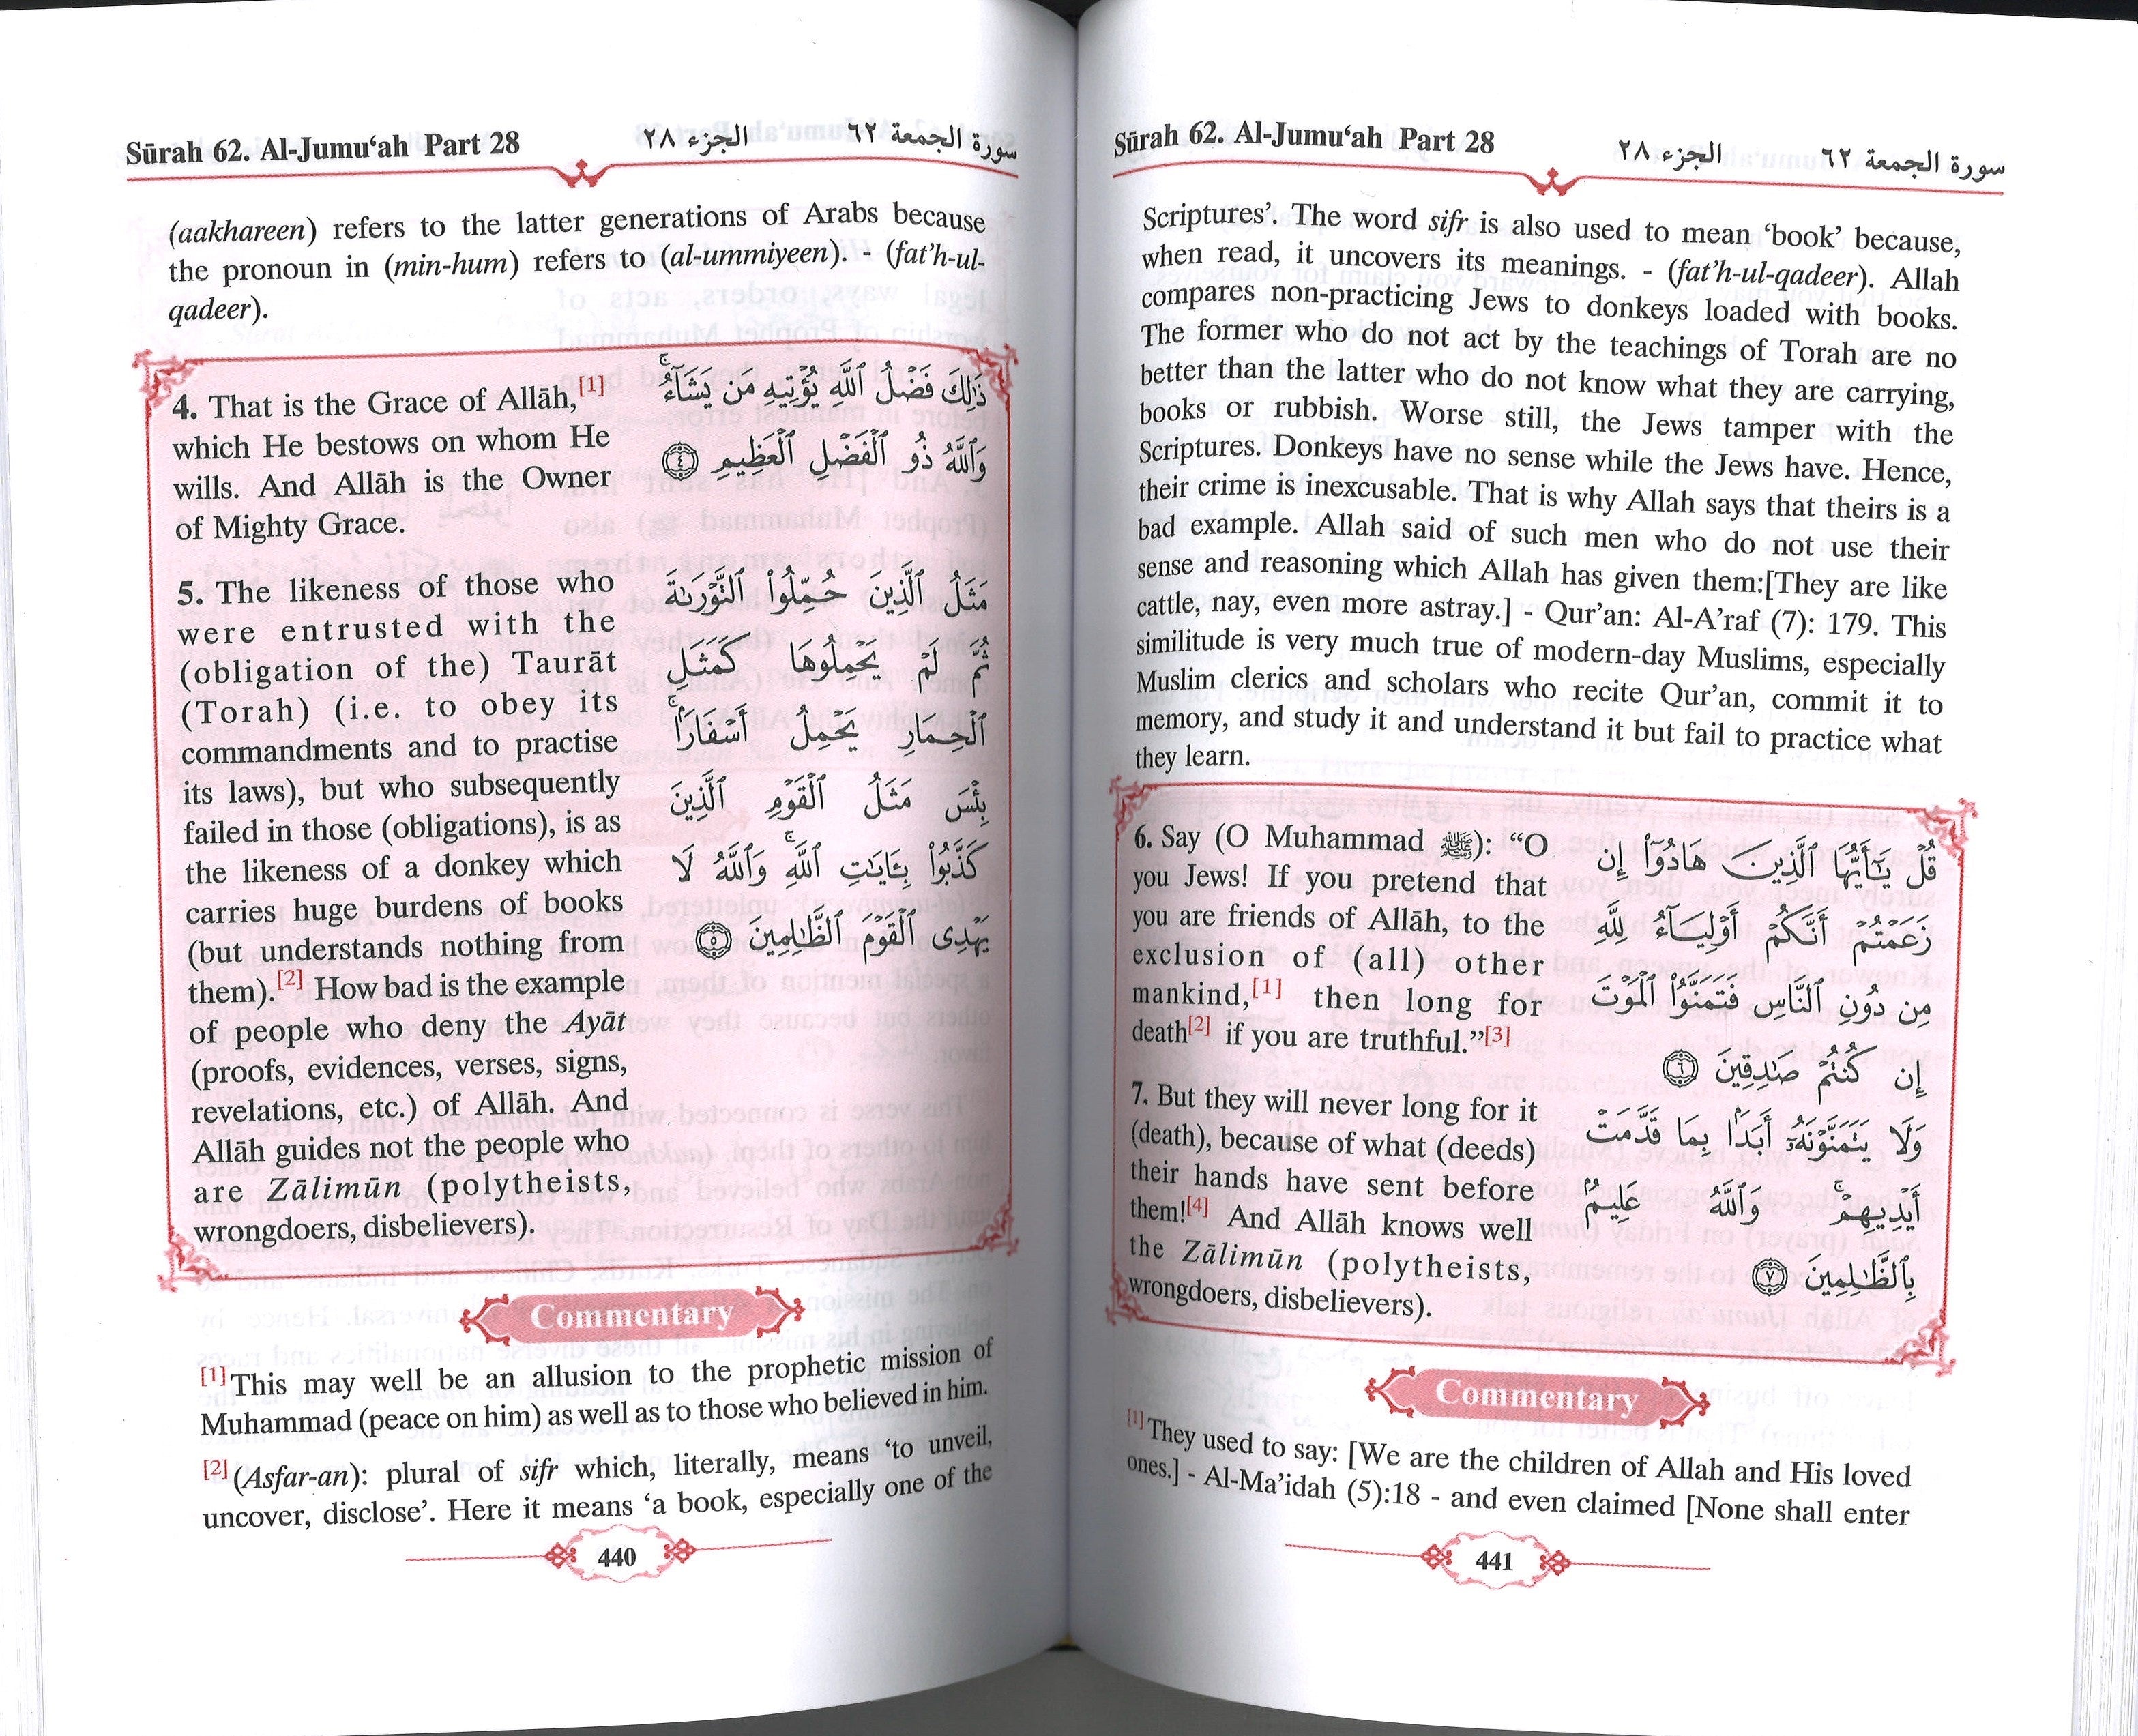 Sūrah 62. Al-Jumu‘ah Part 28 الجزء ٢٨ سورة الجمعة ٦٢
(aakhareen) refers to the latter generations of Arabs because
the pronoun in (min-hum) refers to (al-ummiyeen). - (fat’h-ul-
qadeer).
4. That is the Grace of Allāh,[1]
which He bestows on whom He
wills. And Allāh is the Owner
of Mighty Grace.
ذَٰلِكَ فَضْلُ ٱللَّهِ يُؤْتِيهِ مَن يَشَآءُ ۚ
وَٱللَّهُ ذُو ٱلْفَضْلِ ٱلْعَظِيمِ ٤
5. The likeness of those who
were entrusted with the
(obligation of the) Taurāt
(Torah) (i.e. to obey its
commandments and to practise
its laws), but who subsequently
failed in those (obligations), is as
the likeness of a donkey which
carries huge burdens of books
(but understands nothing from
them).[2] How bad is the example
of people who deny the Ayāt
(proofs, evidences, verses, signs,
revelations, etc.) of Allāh. And
Allāh guides not the people who
are Zālimūn (polytheists,
wrongdoers, disbelievers).
مَثَلُ ٱلَّذِينَ حُمِّلُوا۟ ٱلتَّوْرَىٰةَ
ثُمَّ لَمْ يَحْمِلُوهَا كَمَثَلِ
ٱلْحِمَارِ يَحْمِلُ أَسْفَارًۢا ۚ
بِئْسَ مَثَلُ ٱلْقَوْمِ ٱلَّذِينَ
كَذَّبُوا۟ بِـَٔايَـٰتِ ٱللَّهِ ۚ وَٱللَّهُ لَا
يَهْدِى ٱلْقَوْمَ ٱلظَّـٰلِمِينَ ٥
Commentary
[1] This may well be an allusion to the prophetic mission of
Muhammad (peace on him) as well as to those who believed in him.
[2] (Asfar-an): plural of sifr which, literally, means ‘to unveil,
uncover, disclose’. Here it means ‘a book, especially one of the
440
Sūrah 62. Al-Jumu‘ah Part 28 الجزء ٢٨ سورة الجمعة ٦٢
Scriptures’. The word sifr is also used to mean ‘book’ because,
when read, it uncovers its meanings. - (fat’h-ul-qadeer). Allah
compares non-practicing Jews to donkeys loaded with books.
The former who do not act by the teachings of Torah are no
better than the latter who do not know what they are carrying,
books or rubbish. Worse still, the Jews tamper with the
Scriptures. Donkeys have no sense while the Jews have. Hence,
their crime is inexcusable. That is why Allah says that theirs is a
bad example. Allah said of such men who do not use their
sense and reasoning which Allah has given them:[They are like
cattle, nay, even more astray.] - Qur’an: Al-A’raf (7): 179. This
similitude is very much true of modern-day Muslims, especially
Muslim clerics and scholars who recite Qur’an, commit it to
memory, and study it and understand it but fail to practice what
they learn.
6. Say (O Muhammad ﷺ): “O
you Jews! If you pretend that
you are friends of Allāh, to the
exclusion of (all) other
mankind,[1] then long for
death[2] if you are truthful.”[3]
قُلْ يَـٰٓأَيُّهَا ٱلَّذِينَ هَادُوٓا۟ إِن
زَعَمْتُمْ أَنَّكُمْ أَوْلِيَآءُ لِلَّهِ
مِن دُونِ ٱلنَّاسِ فَتَمَنَّوُا۟ ٱلْمَوْتَ
إِن كُنتُمْ صَـٰدِقِينَ ٦
7. But they will never long for it
(death), because of what (deeds)
their hands have sent before
them![4] And Allāh knows well
the Zālimūn (polytheists,
wrongdoers, disbelievers).
وَلَا يَتَمَنَّوْنَهُۥٓ أَبَدًۢا بِمَا قَدَّمَتْ
أَيْدِيهِمْ ۚ وَٱللَّهُ عَلِيمٌۢ
بِٱلظَّـٰلِمِينَ ٧
Commentary
[1] They used to say: [We are the children of Allah and His loved
ones.] - Al-Ma’idah (5):18 - and even claimed [None shall enter
441